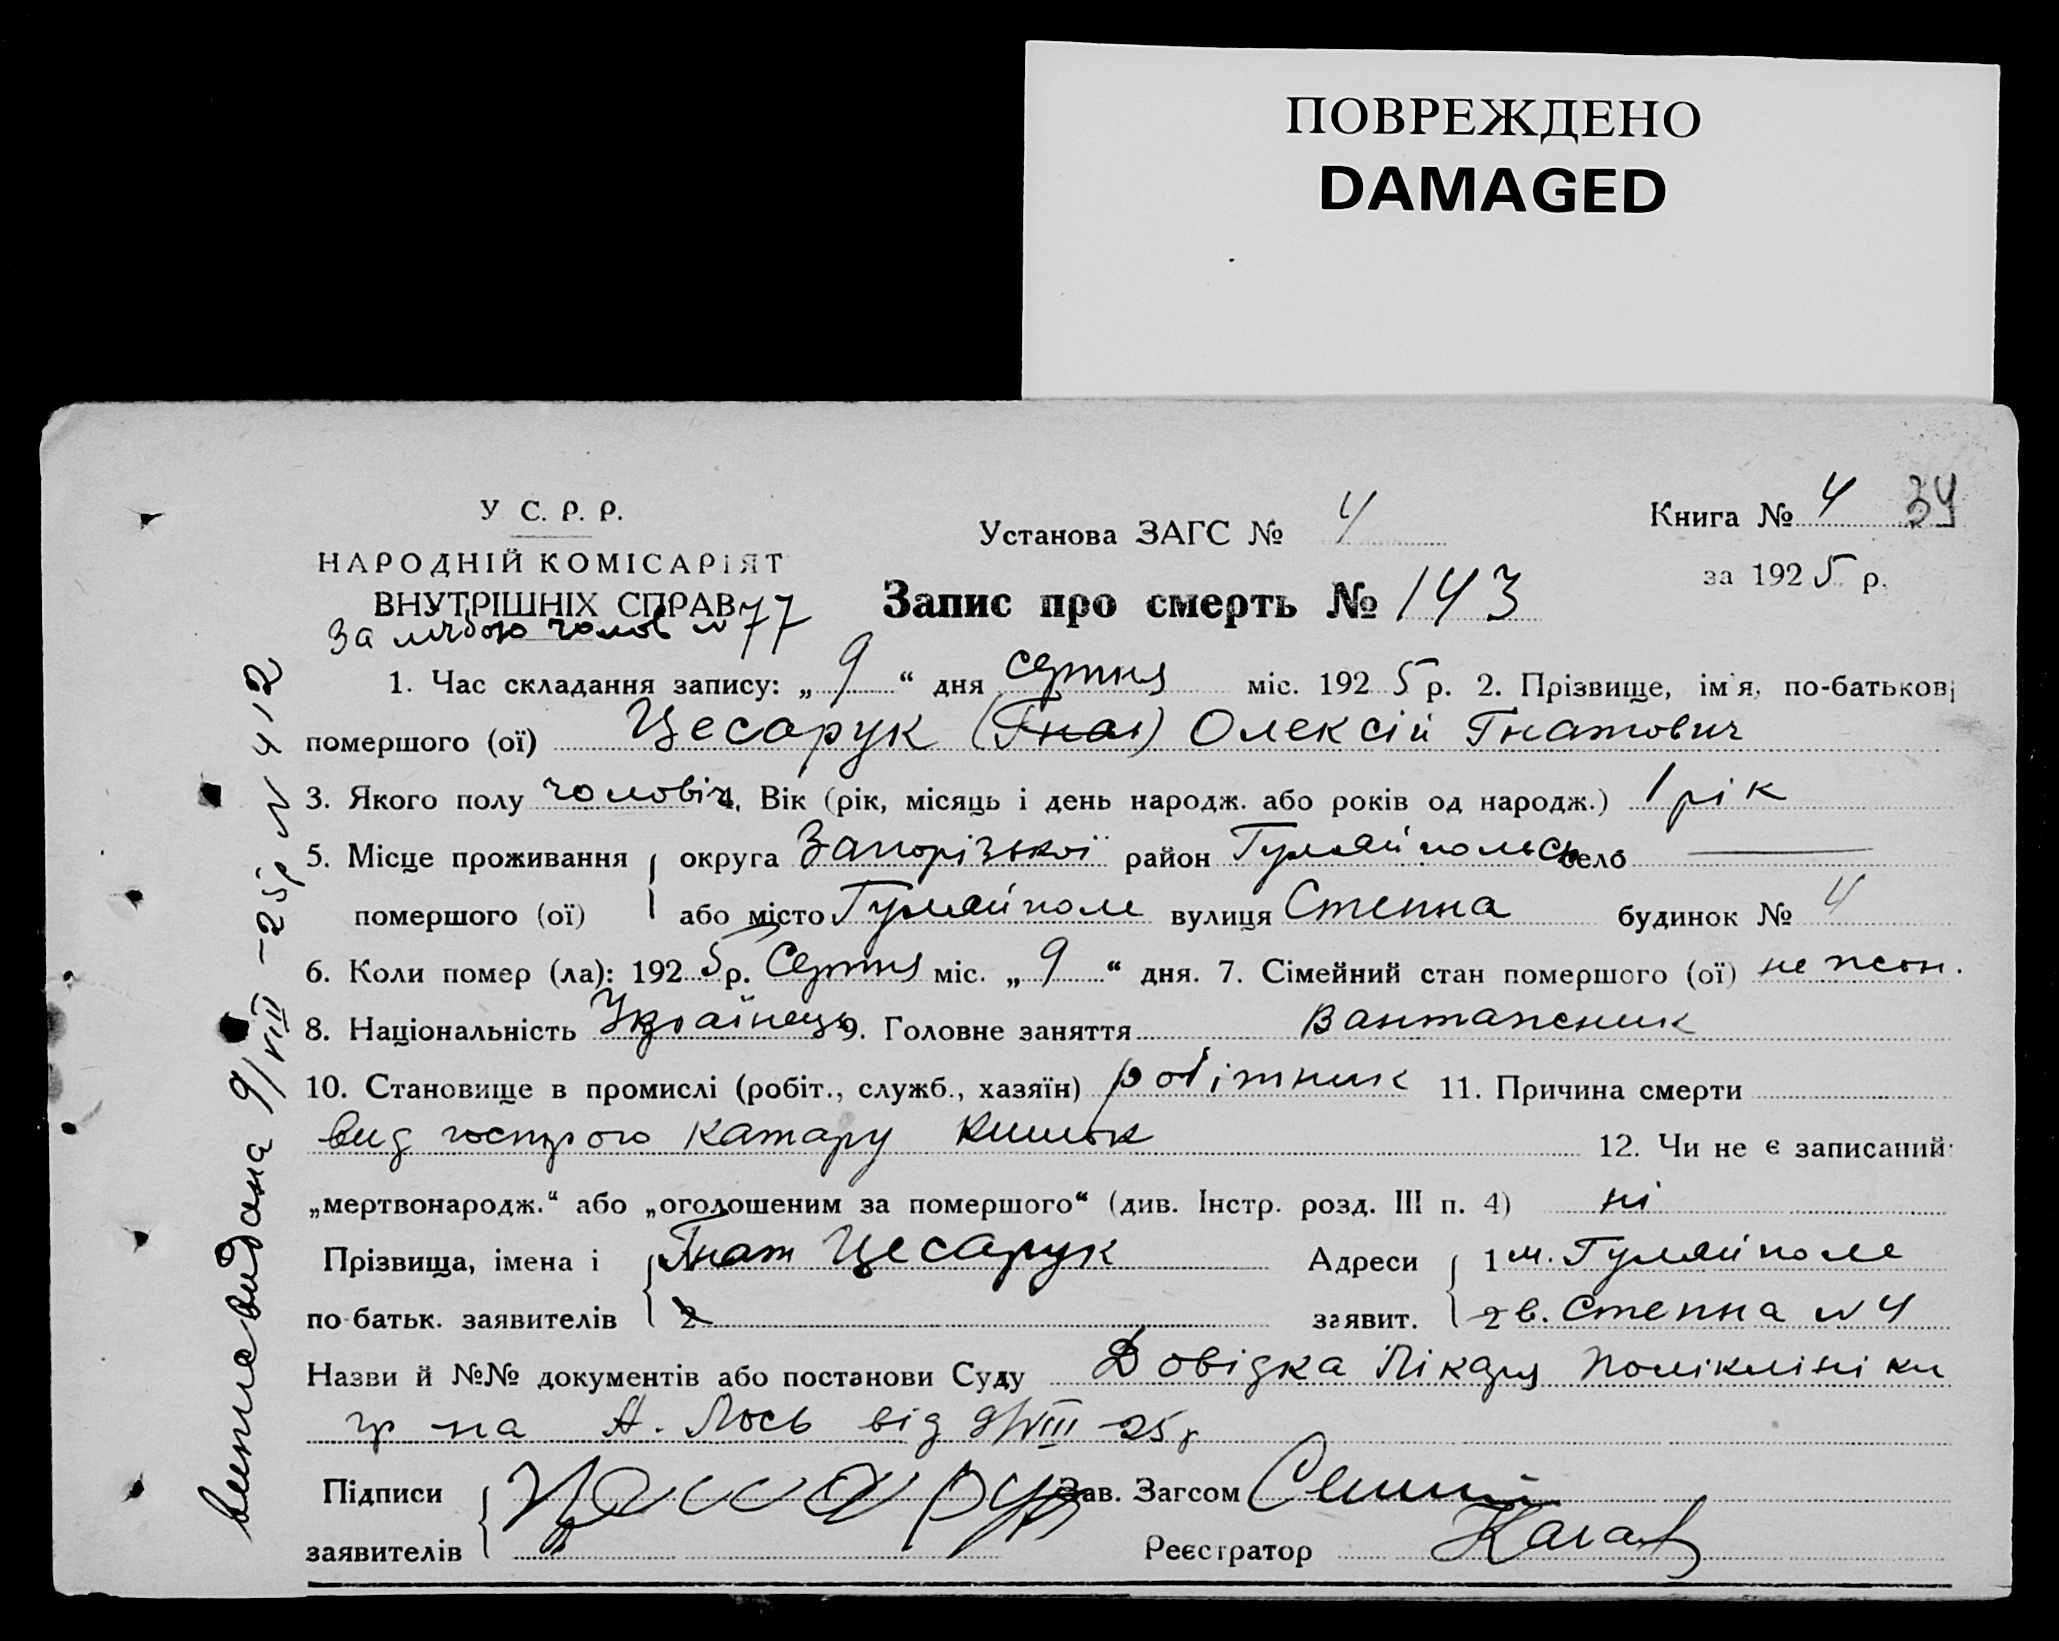 ПОВРЕЖДЕНО
DAMAGED
У С. Р. Р.
НАРОДНІЙ КОМІСАРІЯТ
ВНУТРІШНІХ СПРАВ
За лічбою чолов № 77
Установа ЗАГС № 4
Книга № 4 34
за 1925 р.
Запис про смерть № 143
1. Час складання запису: „9“ дня серпня міс. 1925 р. 2. Прізвище, ім'я, по-батькові
помершого (ої) Цесарук (Гнат) Олексій Гнатович
3. Якого полу чоловіч. Вік (рік, місяць і день народж. або років од народж.) 1 рік
5. Місце проживання округа Запорізької район Гуляйпольськ село
помершого (ої) або місто Гуляйполе вулиця Степна будинок № 4
6. Коли помер (ла): 1925 р. Серпня міс. „9“ дня. 7. Сімейний стан помершого (ої) не жон.
8. Національність Українець 9. Головне заняття Вантажник
10. Становище в промислі (робіт., служб., хазяїн) робітник 11. Причина смерти
вид гострого катару кишок 12. Чи не є записаний
„мертвонародж.“ або „оголошеним за помершого“ (див. Інстр. розд. III п. 4) ні
Прізвища, імена і Гнат Цесарук Адреси 1 м. Гуляйполе
по-батьк. заявителів 2 заявит. 2 в. Степна № 4
Назви й №№ документів або постанови Суду Довідка Лікаря Поліклініки
гр на А. Лось від 9/VIII-25 р
Підписи Зав. Загсом
заявителів Реєстратор
витяг видана 9/VIII-25р № 412